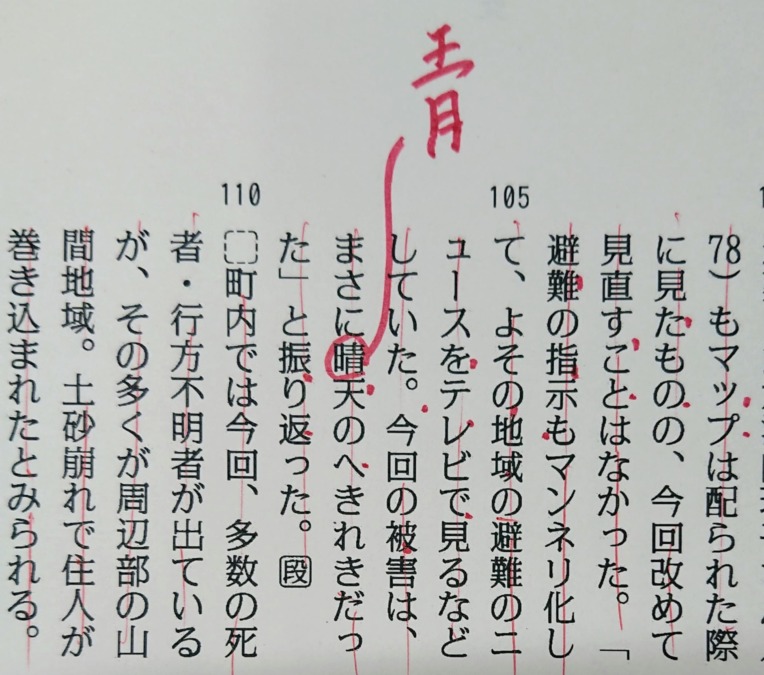 78）もマップは配られた際
に見たものの、今回改めて
見直すことはなかった。「
避難の指示もマンネリ化し
105
て、よその地域の避難のニ
ュースをテレビで見るなど
していた。今回の被害は、
青
まさに晴天のへきれきだっ
た」と振り返った。段
110
町内では今回、多数の死
者・行方不明者が出ている
が、その多くが周辺部の山
間地域。土砂崩れで住人が
巻き込まれたとみられる。